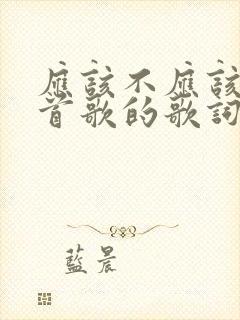 應該不應該
首歌的歌詞
藍晨